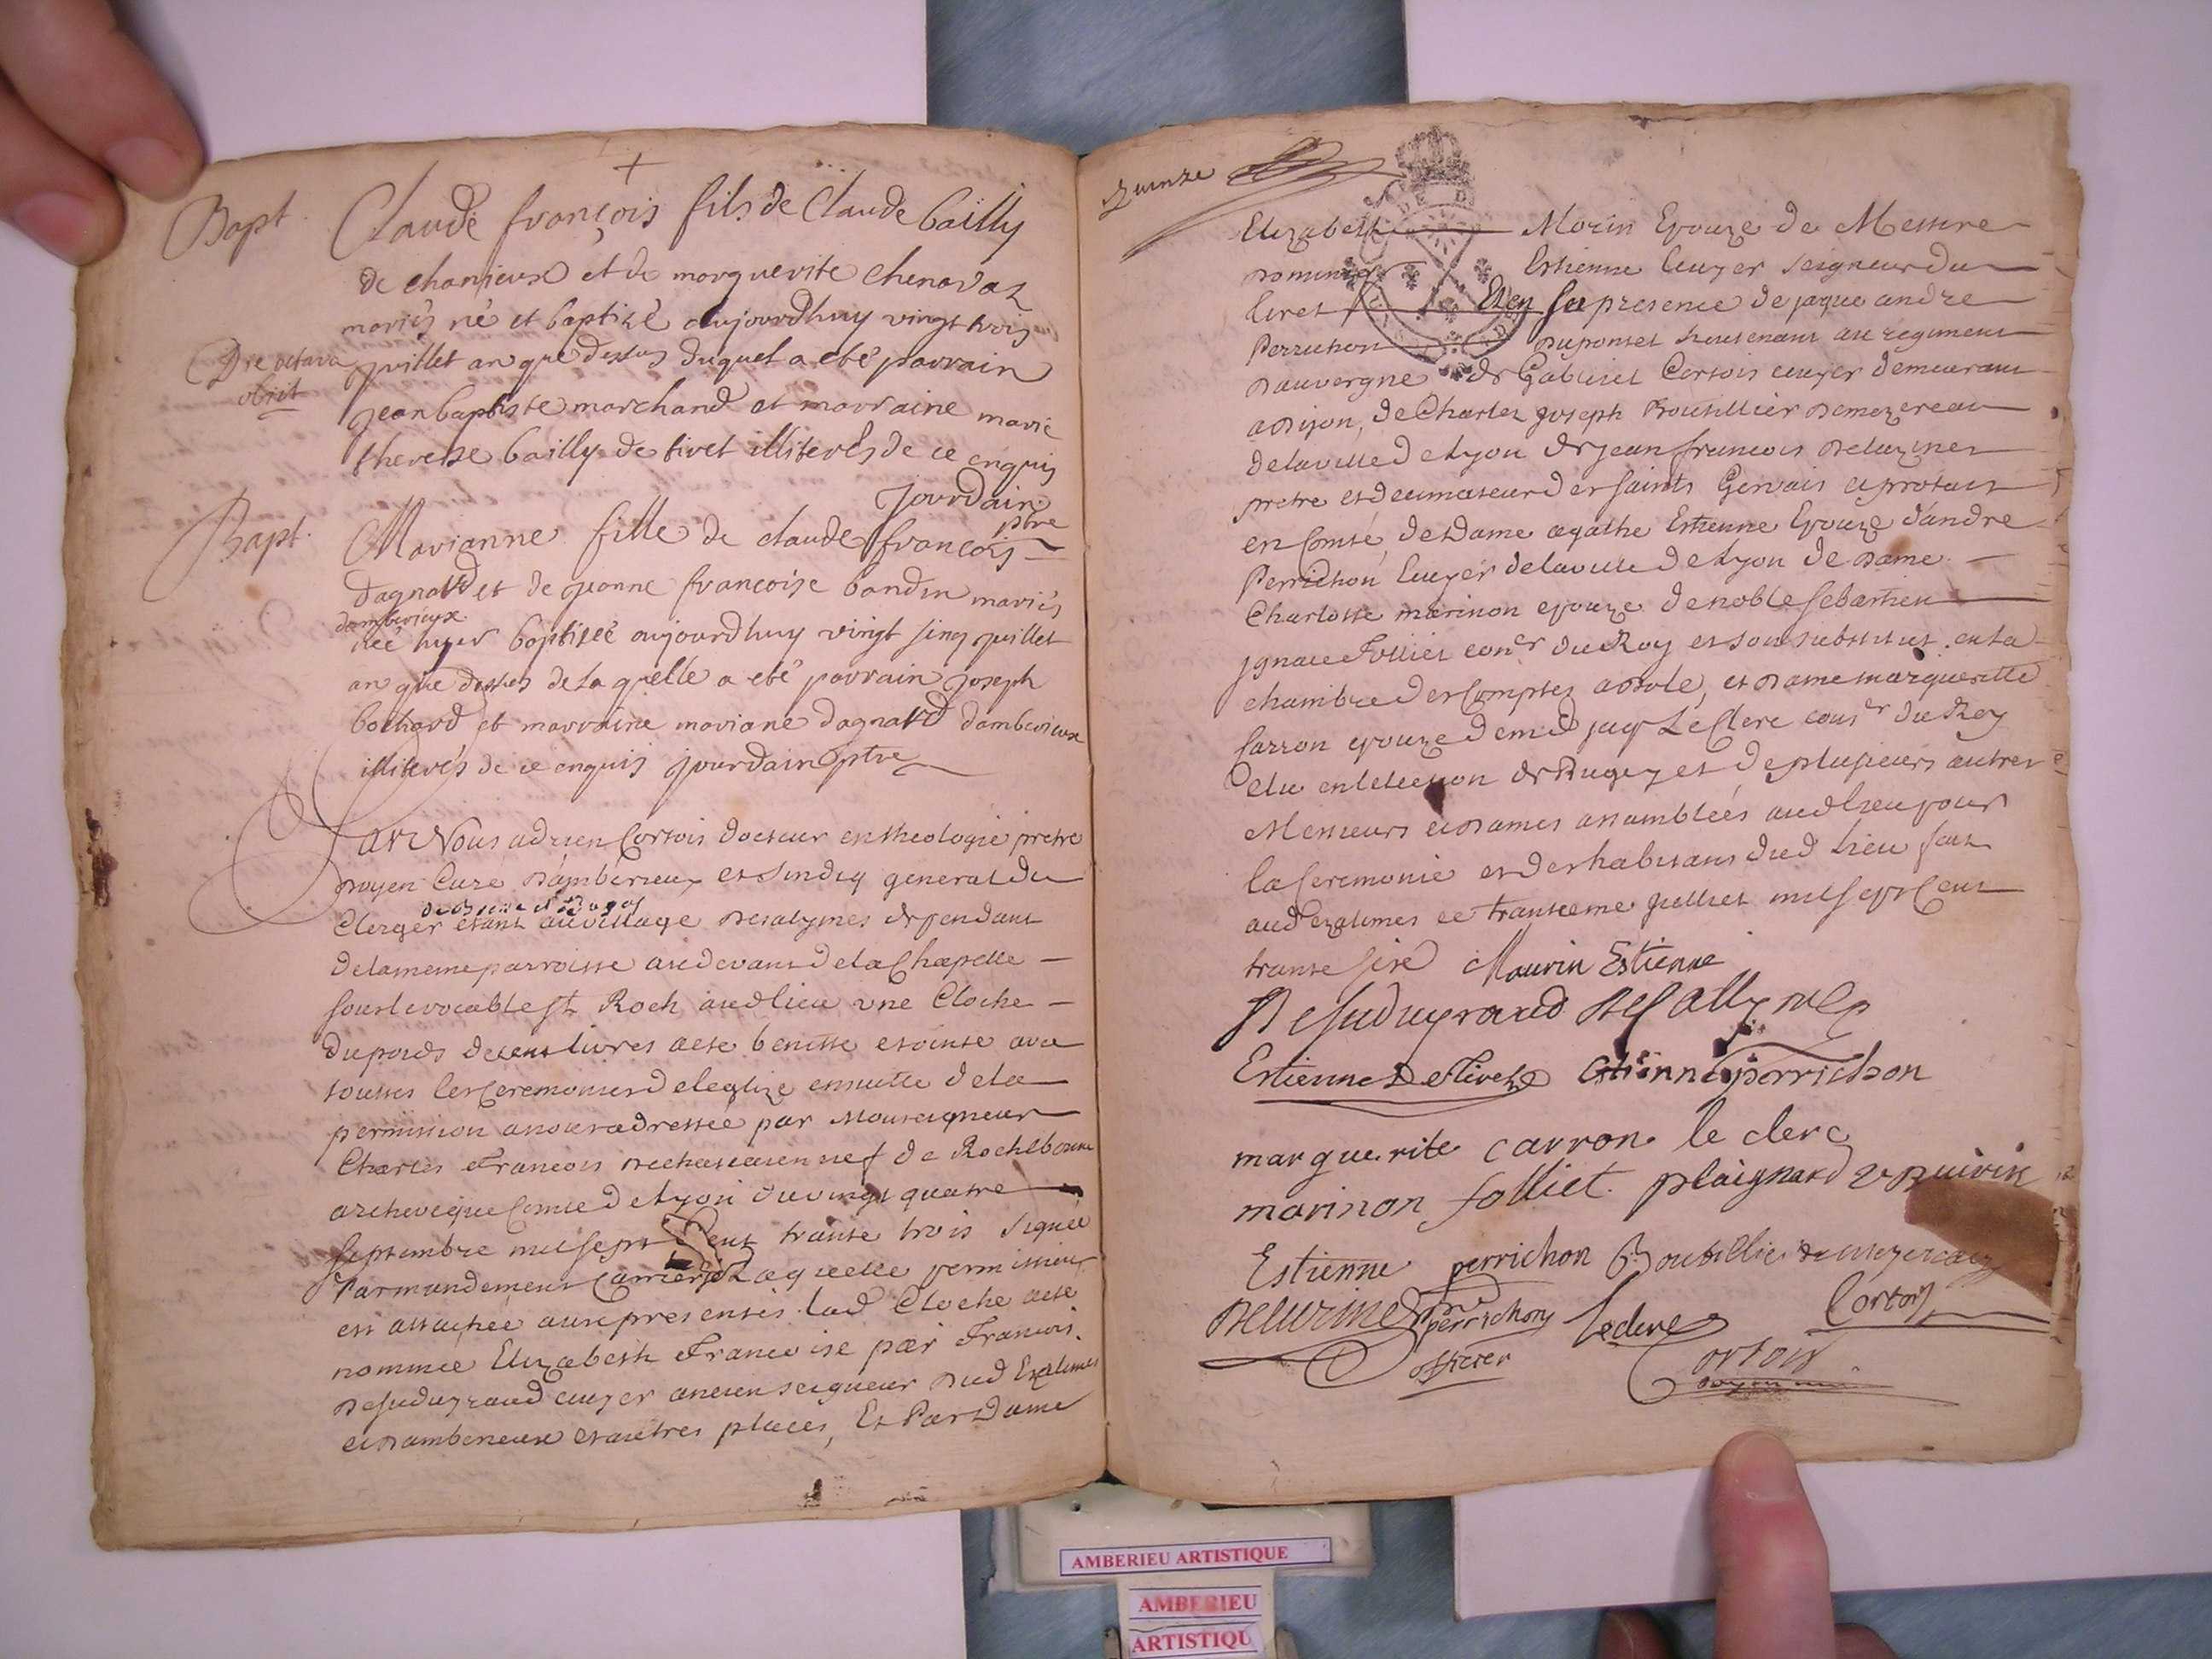 Bapt. Claude françois fils de Claude bailly
de chanieux et de marguerite chenavaz
mariés né et baptisé aujourdhuy vingt trois
juillet an que dessus duquel a eté parrain
Die octava
obiit
jean baptiste marchand et marraine marie
therese bailly de tiret illiterés de ce enquis
Jourdain
ptre
Bapt. Marianne fille de claude françois
dagnard et de jeanne françoise bondin mariés
damberieux
née hyer baptisée aujourdhuy vingt sinq juillet
an que dessus de la quelle a eté parrain joseph
bochard et marraine mariane dagnard damberieux
illiterés de ce enquis jourdain ptre
Par Nous adrien Cortois docteur en theologie pretre
doyen Curé Damberieux et sindiq general du
de Bresse et Bugey
Clerger etant au village Desalymes dependant
de la meme parroisse au devant de la Chapelle
sous le vocable St Roch audlieu une Cloche
du poids de cent livres a ete benitte et ointe avec
toutes les Ceremonies de leglize ensuitte de la
permission a nous adressée par Monseigneur
Charles François de chateauneuf de Rochebonne
archeveque Comte de Lyon du vingt quatre
septembre mil sept Cent trante trois signée
Par mandement laquelle permission
est attachée aux presentes. lad Cloche a ete
nommée Elizabeth Francoise par Francois
Desudugraud ecuyer ancien seigneur Dud Ezalimes
et Damberieux et autres places, Et Par Dame
quinze
Elizabeth Morin Epouze de Messire
Dominiq Estienne Ecuyer seigneur du
tiret Et en la presence de jaque andre
Perrichon Duponset lieutenant au regiment
Dauvergne de Gabriel Cortois ecuyer demeurant
a Dijon, de Charles joseph Boutillier Demezereau
de la ville de Lyon de jean francois Deluzines
pretre et decimateur des saints Gervais et protais
en Comté, de Dame agathe Estienne Epouze dandre
Perrichon Ecuyer de la ville de Lyon de Dame
Charlotte marinon epouze de noble sebastien
jgnace Folliet coner du Roy et son substitut en la
chambre des Comptes a Dole, et Dame marguerite
Carron epouze de md jaq Le Clerc conser du Roy
elu en lelection de Bugey et de plusieurs autres
Messieurs et Dames assamblées aud lieu pour
la Ceremonie et des habitans dud lieu fait
aud ezalimes ce trantieme juillet mil sept Cent
trante sixe Maurin Estienne
Desudugraud Desallymes
Estienne De tiret Estienne perrichon
marguerite carron le clerc
marinon folliet. plaignard
Estienne perrichon Boutillier de mezereau
Deluzines ptre perrichon leclerc Cortois
officier Cortois
doyen
AMBERIEU ARTISTIQUE
AMBERIEU
ARTISTIQU